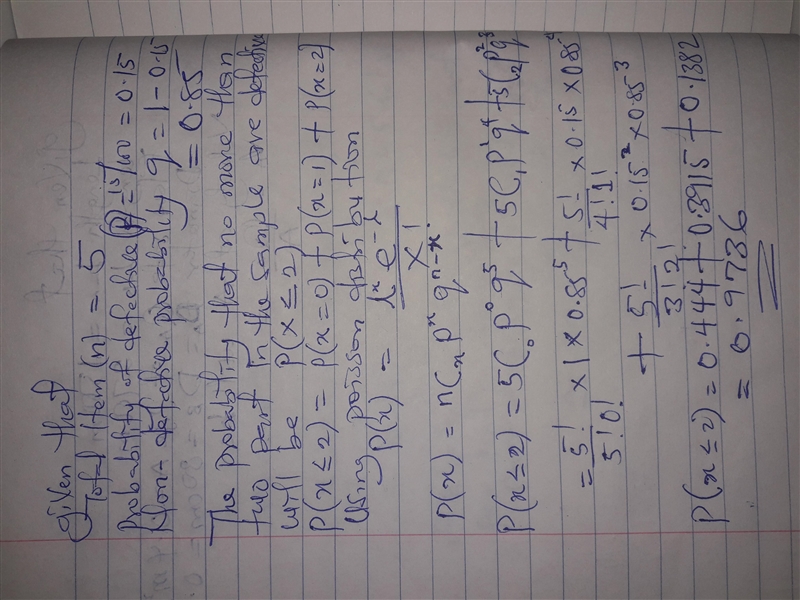 Given that
Total Item (n) = 5
Probability of defective (p) = 15/100 = 0.15
Non-defective probability q = 1 - 0.15
= 0.85
The probability that no more than
two part in the sample are defective
will be P(x ≤ 2)
P(x ≤ 2) = P(x=0) + P(x=1) + P(x=2)
Using poisson distribution
P(x) = λˣ e^-λ / x!
P(x) = nCₓ pˣ qⁿ⁻ˣ
P(x ≤ 2) = 5C₀ p⁰ q⁵ + 5C₁ p¹ q⁴ + 5C₂ p² q³
= 5!/5!0! x 1 x 0.85⁵ + 5!/4!1! x 0.15 x 0.85⁴
+ 5!/3!2! x 0.15² x 0.85³
P(x ≤ 2) = 0.444 + 0.3915 + 0.1382
= 0.9736